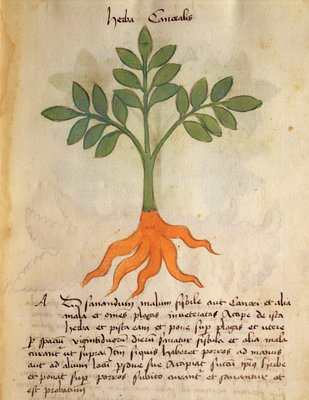 herba Cancralis
A D sanandum malum fistule aut Cancri et alia
mala et omes plagas inveteratas Accipe de ista
herba et pista eam et pone sup plagas et utere
p spaciu viginti dieru sanatur fistula et alia mala
curant ut supra Itm siquis haberet porros ad manus
aut ad alium locu ipsius Accipiat succu ipi herbe
et ponat sup porros subito curant et sanantur et
est probatum